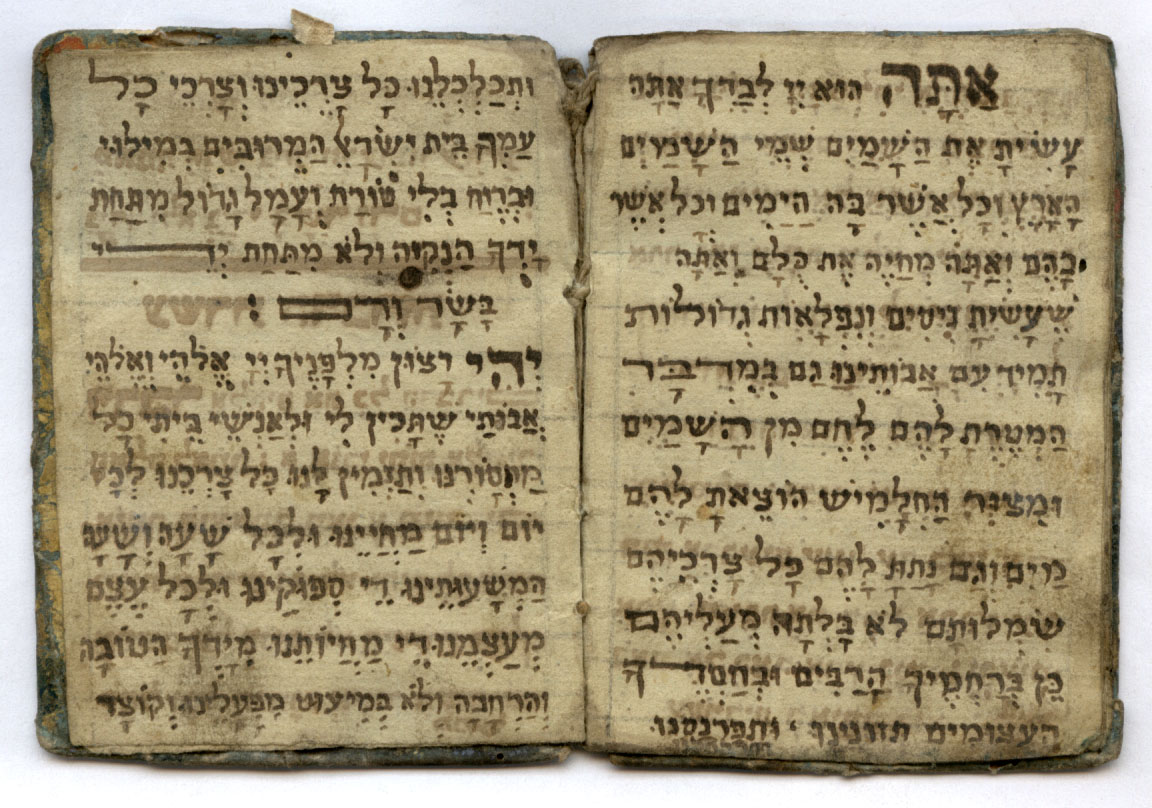 אַתָּה הוּא יְיָ לְבַדֶּךָ אַתָּה
עָשִׂיתָ אֶת הַשָּׁמַיִם שְׁמֵי הַשָּׁמַיִם
הָאָרֶץ וְכָל אֲשֶׁר בָּהּ הַיַמִים וְכָל אֲשֶׁר
בָּהֶם וְאַתָּה מְחַיֶה אֶת כֻּלָּם וְאַתָּה
שֶׁעָשִׂיתָ נִיסִים וְנִפְלָאוֹת גְדוֹלוֹת
תָּמִיד עִם אֲבוֹתֵינוּ גַם בַּמִדְבָּר
הִמְטַרְתָּ לָהֶם לֶחֶם מִן הַשָּׁמַיִם
וּמִצּוּר הַחַלָמִישׁ הוֹצֵאתָ לָהֶם
מַיִם וְגַם נָתַתָּ לָהֶם כָּל צָרְכֵיהֶם
שִׂמְלוֹתָם לֹא בָּלְתָה מֵעֲלֵיהֶם
כֵּן בְּרַחֲמֶיךָ הָרַבִּים וּבַחֲסָדֶיךָ
הָעֲצוּמִים תְּזוּנֵינוּ וּתְפַרְנְסֵנוּ
וּתְכַלְכְּלֵנוּ כָּל צָרְכֵינוּ וְצָרְכֵי כָּל
עַמְּךָ בֵּית יִשְׂרָאֵל הַמְרוּבִּים בְּמִילוּי
וּבְרֶוַח בְּלִי טוֹרַח וְעָמָל גָדוֹל מִתַּחַת
יָדְךָ הַנְקִיָּה וְלֹא מִתַּחַת יְדֵי
בָּשָׂר וָדָם :
יְהִי רָצוֹן מִלְּפָנֶיךָ יְיָ אֱלֹהַי וֵאלֹהֵי
אֲבוֹתַי שֶׁתָּכִין לִי וּלְאַנְשֵׁי בֵיתִי כָּל
מַחְסוֹרֵנוּ וְתַזְמִין לָנוּ כָּל צָרְכֵנוּ לְכָל
יוֹם וָיוֹם מֵחַיֵינוּ וּלְכָל שָׁעָה וְשָׁעָה
מִשָּׁעוֹתֵינוּ דֵי סִפּוּקֵינוּ וּלְכָל עֶצֶם
מֵעֲצָמֵנוּ דֵי מִחְיוֹתֵנוּ מִיָּדְךָ הַטּוֹבָה
וְהָרְחָבָה וְלֹא בְּמִיעוּט מִפְעָלֵינוּ וְקוֹצֶר